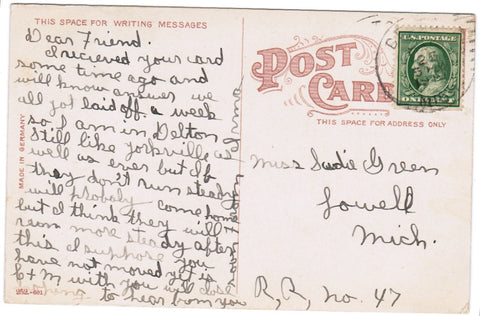 THIS SPACE FOR WRITING MESSAGES
Dear Friend.
I recieved your card
some time ago and
will know answer we
all got laid off a week
so I am in Delton
Still like Yorkville as
well as ever but if
they don't run steady
will probaly come home
but I think they will
run more steady after
this I suphose you
have not moved yet is
F + M with you will close
hoping to hear from you
from Irma
MADE IN GERMANY
252-881
POST
CARD
THIS SPACE FOR ADDRESS ONLY
U.S. POSTAGE
ONE CENT
Miss Sadie Green
Lowell
Mich.
R, R, no. 47